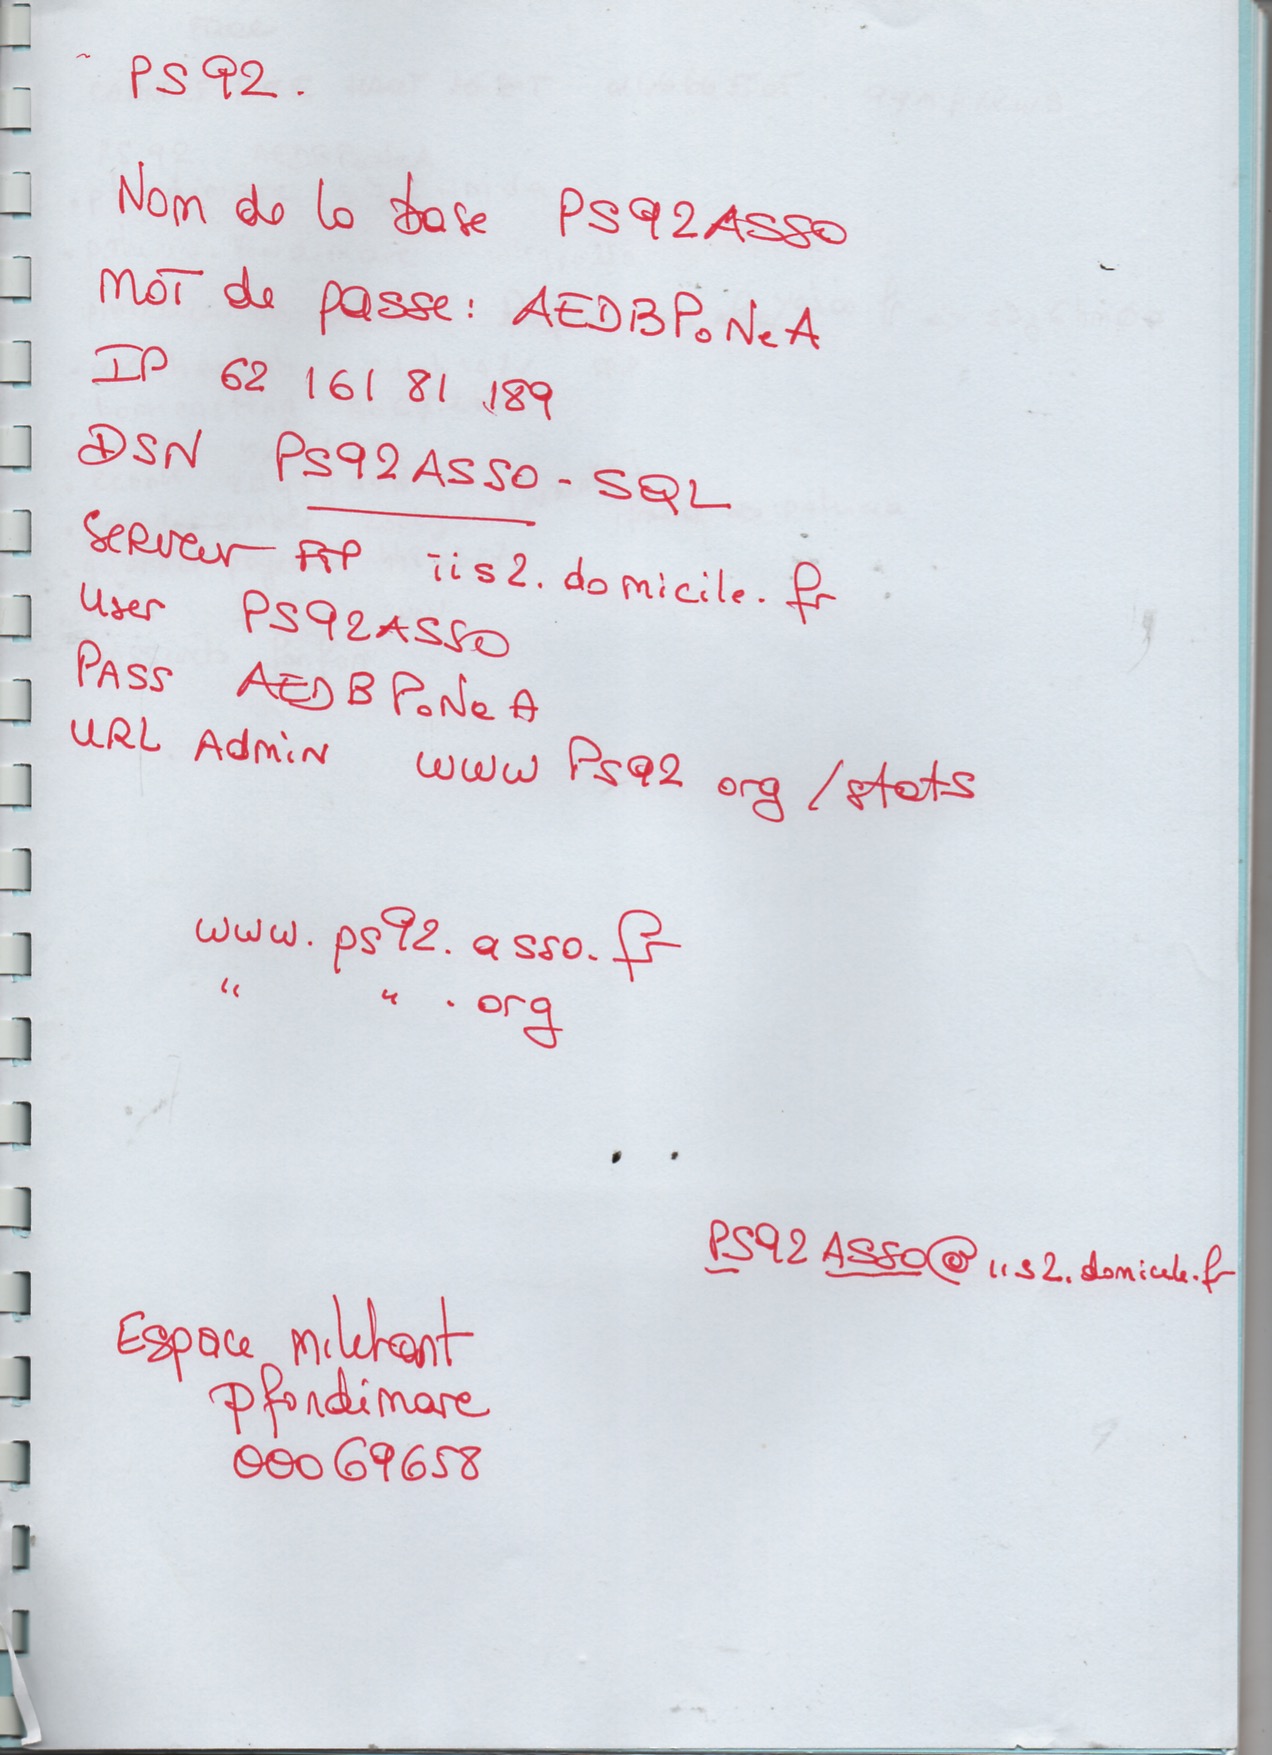 PS92.
Nom de la base PS92ASSO
MOT de passe: AEDBPoNeA
IP 62 161 81 189
DSN PS92ASSO-SQL
Serveur FTP iis2.domicile.fr
User PS92ASSO
PASS AEDBPoNeA
URL Admin www PS92 org /stats
www.ps92.asso.fr
" " .org
PS92ASSO@iis2.domicile.fr
Espace militant
pfondimare
00069658